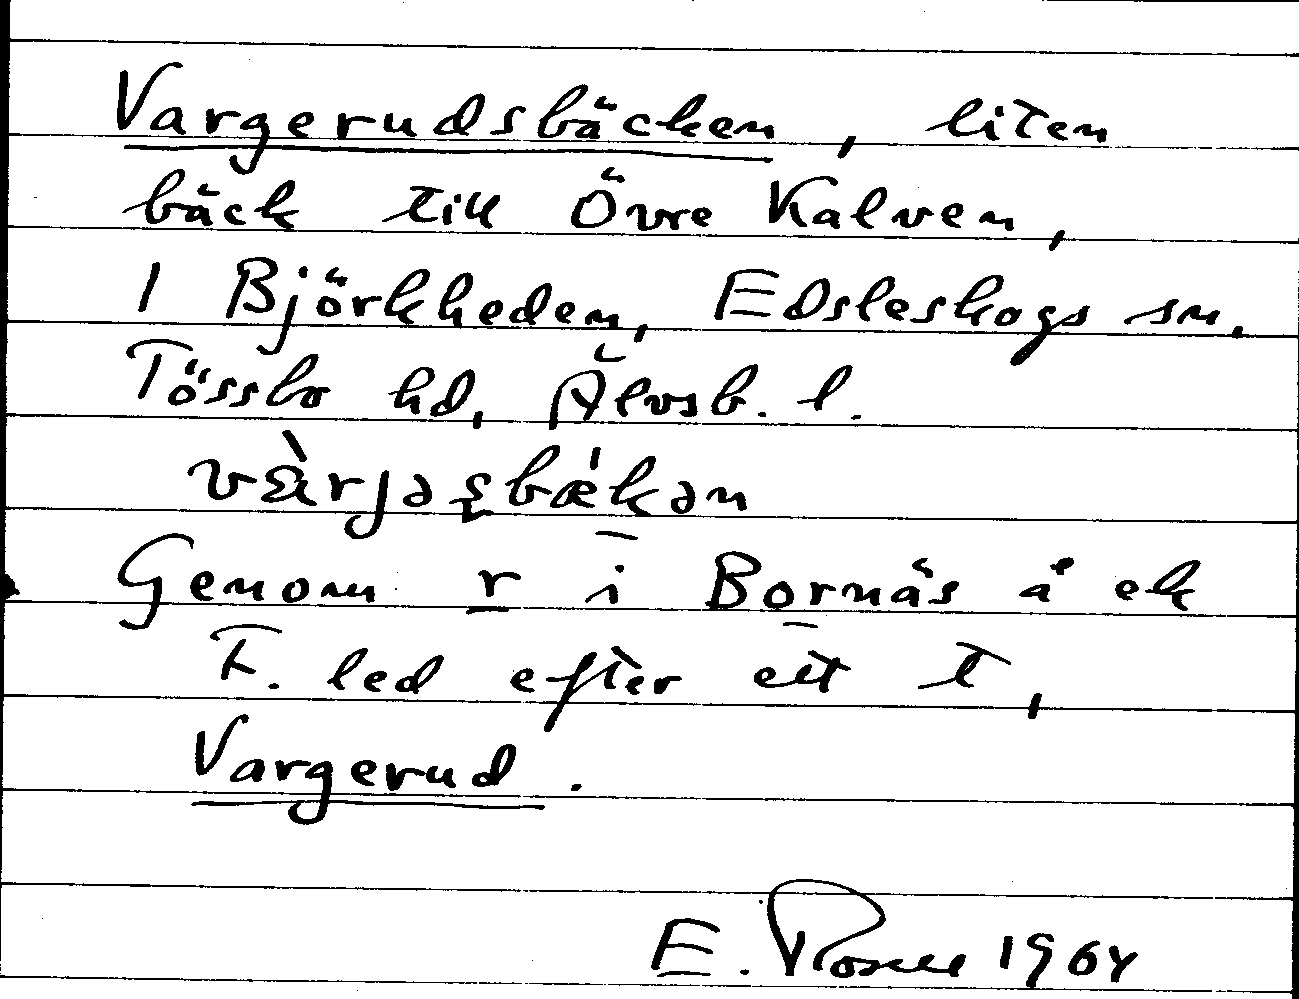 Vargerudsbäcken, liten
bäck till Övre Kalven,
1 Björkheden, Edsleskogs sn.
Tössbo hd, Älvsb. l.
Genom r i Bornäs å ek
F. led efter ett t,
Vargerud.
E. Rosell 1964